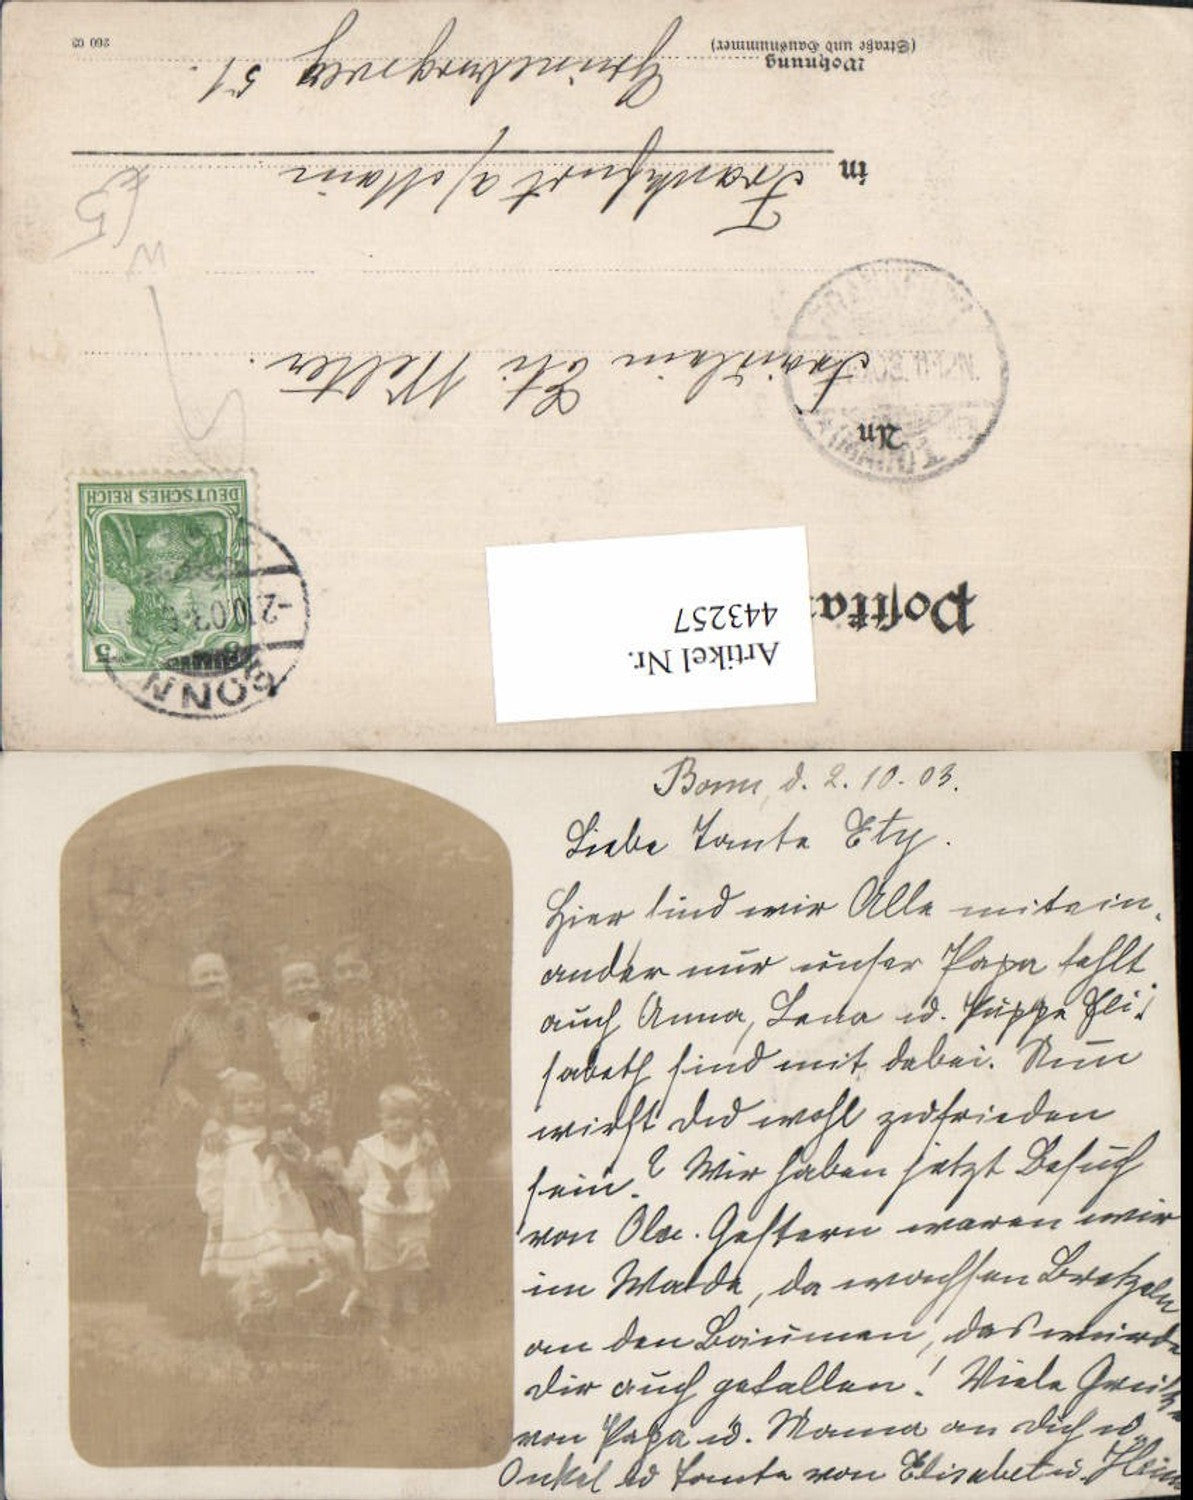 Postka
Artikel Nr.
443257
DEUTSCHES REICH
5 5
BONN
-2.10.03.
An
Fräulein Ety Welter.
in Frankfurt a/Main
Wohnung
(Straße und Hausnummer)
Grüneburgweg 51.
260 03
Bonn, d. 2.10.03.
Liebe Tante Ety.
Hier sind wir Alle mitein-
ander nur unser Papa fehlt
auch Anna, Lena u. Puppe Eli-
sabeth sind mit dabei. Nun
wirst du wohl zufrieden
sein? Wir haben jetzt Besuch
von Gestern waren wir
im Walde, da wachsen Bretzeln
an den Bäumen, das würde
dir auch gefallen! Viele Grüße
von Papa u. Mama an dich u.
Onkel u Tante von Elisabet u. Hein